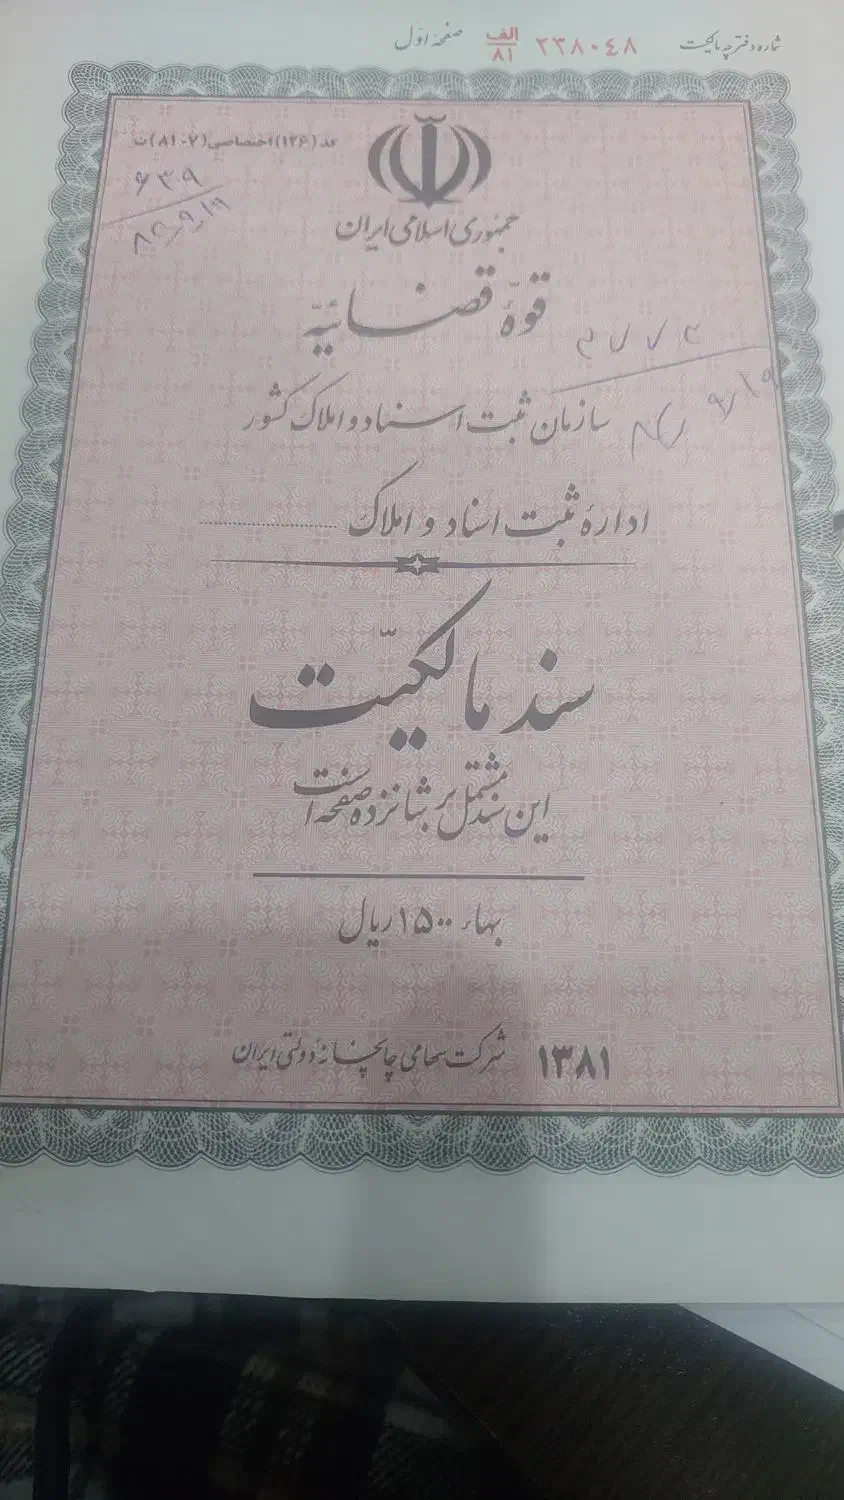 شماره دفترچه مالکیت ۲۳۸۰۴۸ الف/۸۱ صفحهٔ اوّل
کد (۱۲۶) اختصاصی (۷-۸۱) ت
۶۳۹
۸۹/۹/۱۹
جمهوری اسلامی ایران
قوهٔ قضائیّه
سازمان ثبت اسناد و املاک کشور
ادارهٔ ثبت اسناد و املاک ....................
سند مالکیّت
این سند مشتمل بر شانزده صفحه است
بهاء ۱۵۰۰ ریال
۱۳۸۱ شرکت سهامی چاپخانهٔ دولتی ایران